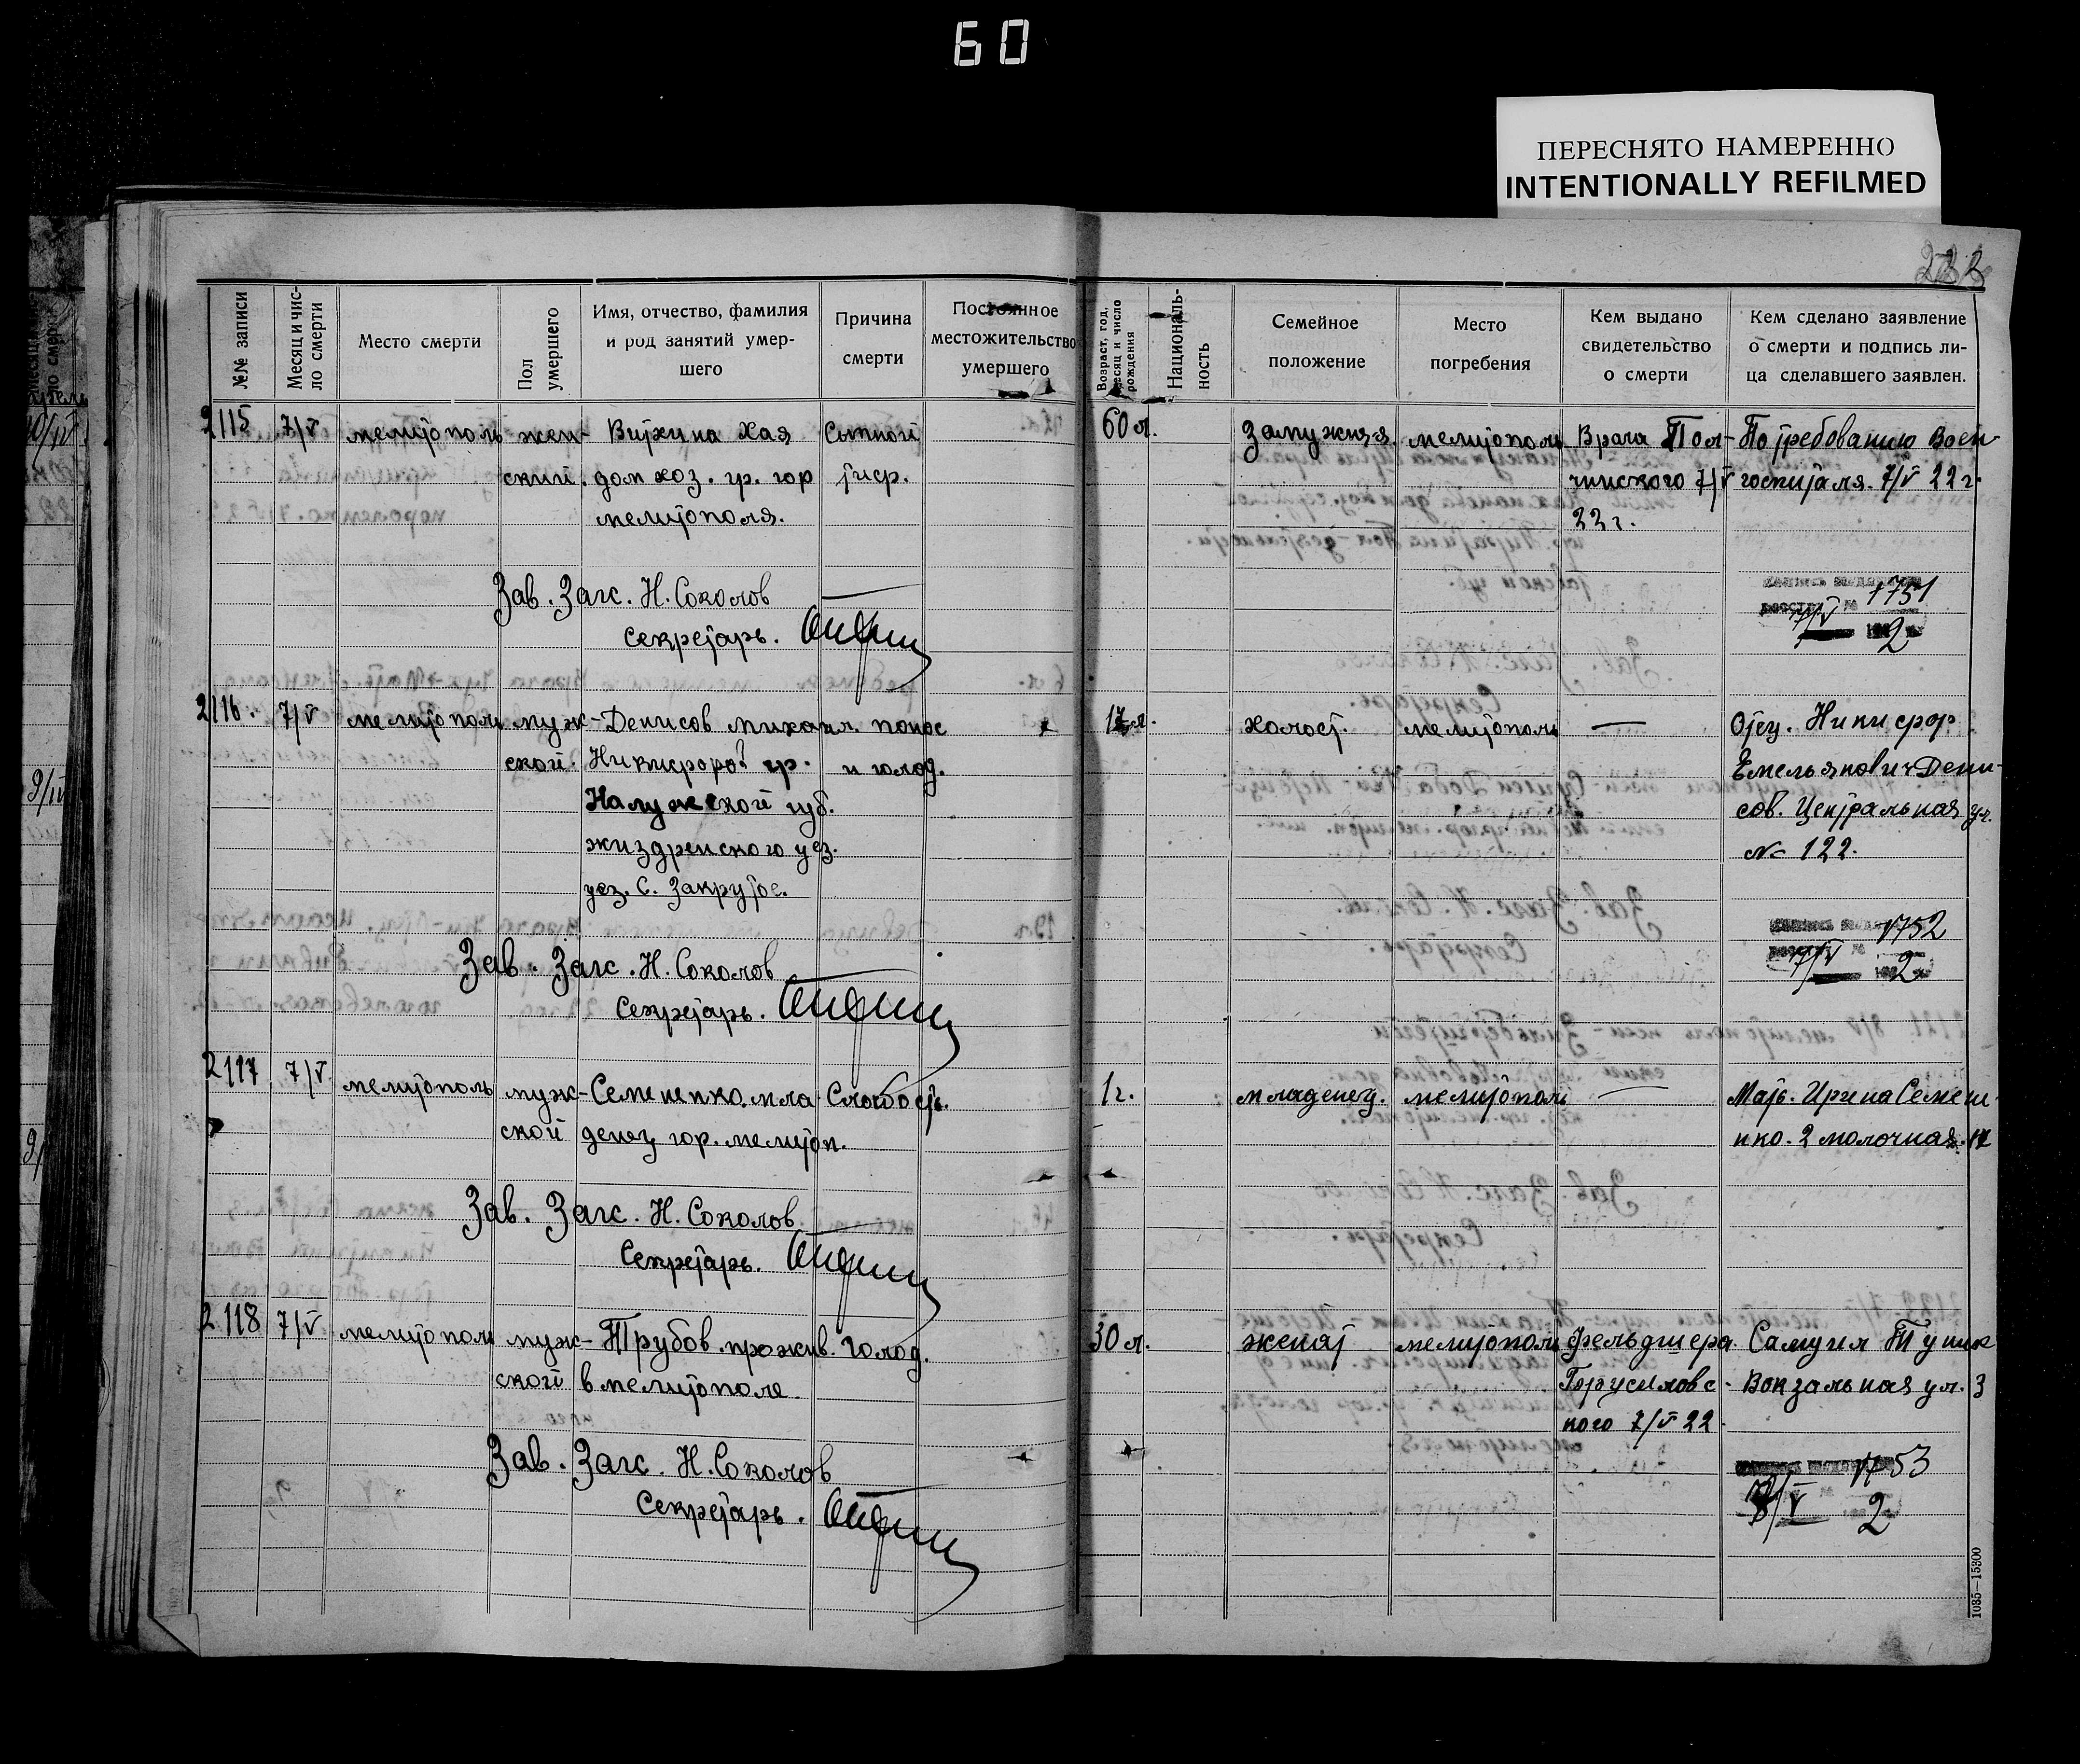 60
ПЕРЕСНЯТО НАМЕРЕННО
INTENTIONALLY REFILMED
№№ записи
Месяц и число смерти
Место смерти
Пол умершего
Имя, отчество, фамилия и род занятий умершего
Причина смерти
Постоянное местожительство умершего
Возраст, год, месяц и число рождения
Националь-ность
Семейное положение
Место погребения
Кем выдано свидетельство о смерти
Кем сделано заявление о смерти и подпись ли-ца сделавшего заявлен.
2115 7/V мелитополь жен- Хая Сыпной 60 л. Замужняя мелитополь Врача Пол- По требованию Воен-
ский. дом хоз. гр. гор тиф. чинского 7/V госпиталя. 7/V 22 г.
мелитополя. 22 г.
Зав. Загс. Н. Соколов
Секретарь.
1751
7/V 2
2116. 7/V мелитополь муж- Денисов михаил понос холост. мелитополь — Отец. Никифор
ской. Никифоров гр. и голод. Емельянович Дени-
Калужской губ. сов. Центральная ул.
жиздренского уез. № 122.
уез. с. Закрутое.
Зав. Загс. Н. Соколов
Секретарь.
1752
7/V 2
2117 7/V мелитополь муж- Семененко мла- Слабость. 1 г. младенец. мелитополь — Мать. Ирина Семен-
ской денец гор. мелитоп. нко. 2 молочная.
Зав. Загс. Н. Соколов
Секретарь.
2118 7/V мелитополь муж- Трубов прожив. Голод. 30 л. женат мелитополь фельдшера Самуил
ской в мелитополе. Вокзальная ул. 3
кого 7/V 22
Зав. Загс. Н. Соколов
Секретарь.
1753
2
1035—15300